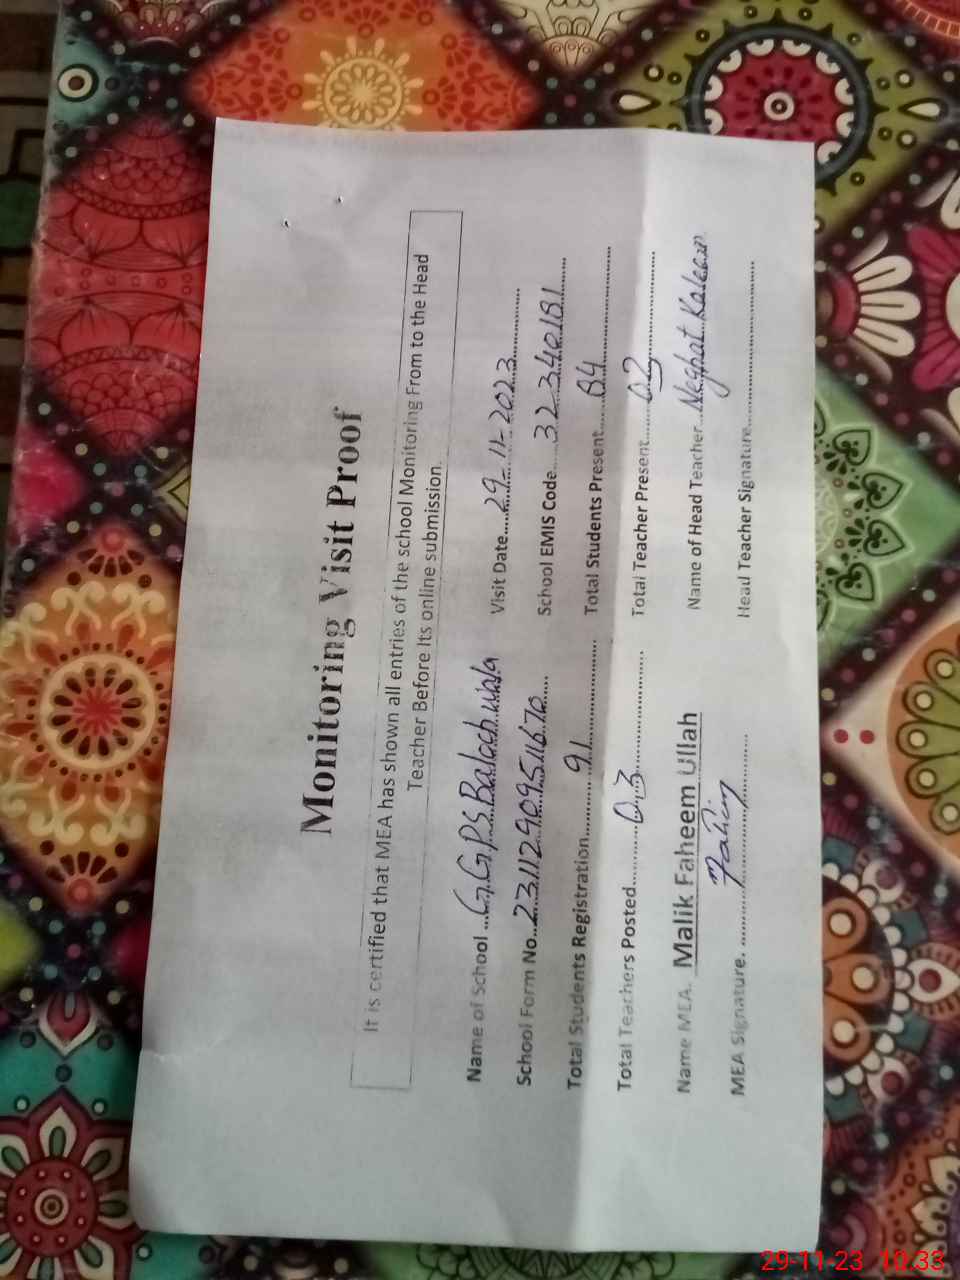 Monitoring Visit Proof
It is certified that MEA has shown all entries of the school Monitoring From to the Head
Teacher Before Its online submission.
Name of School ....G.G.P.S Baloch wala Visit Date.....29-11-2023..........
School Form No..23112909511670...... School EMIS Code......32340181......
Total Students Registration..........91.......... Total Students Present......84..........
Total Teachers Posted..........03.......... Total Teacher Present......03..........
Name MEA. Malik Faheem Ullah Name of Head Teacher...Neghat Kaleem
MEA Signature. ....Fahim.... Head Teacher Signature..............................
29-11-23 10:33